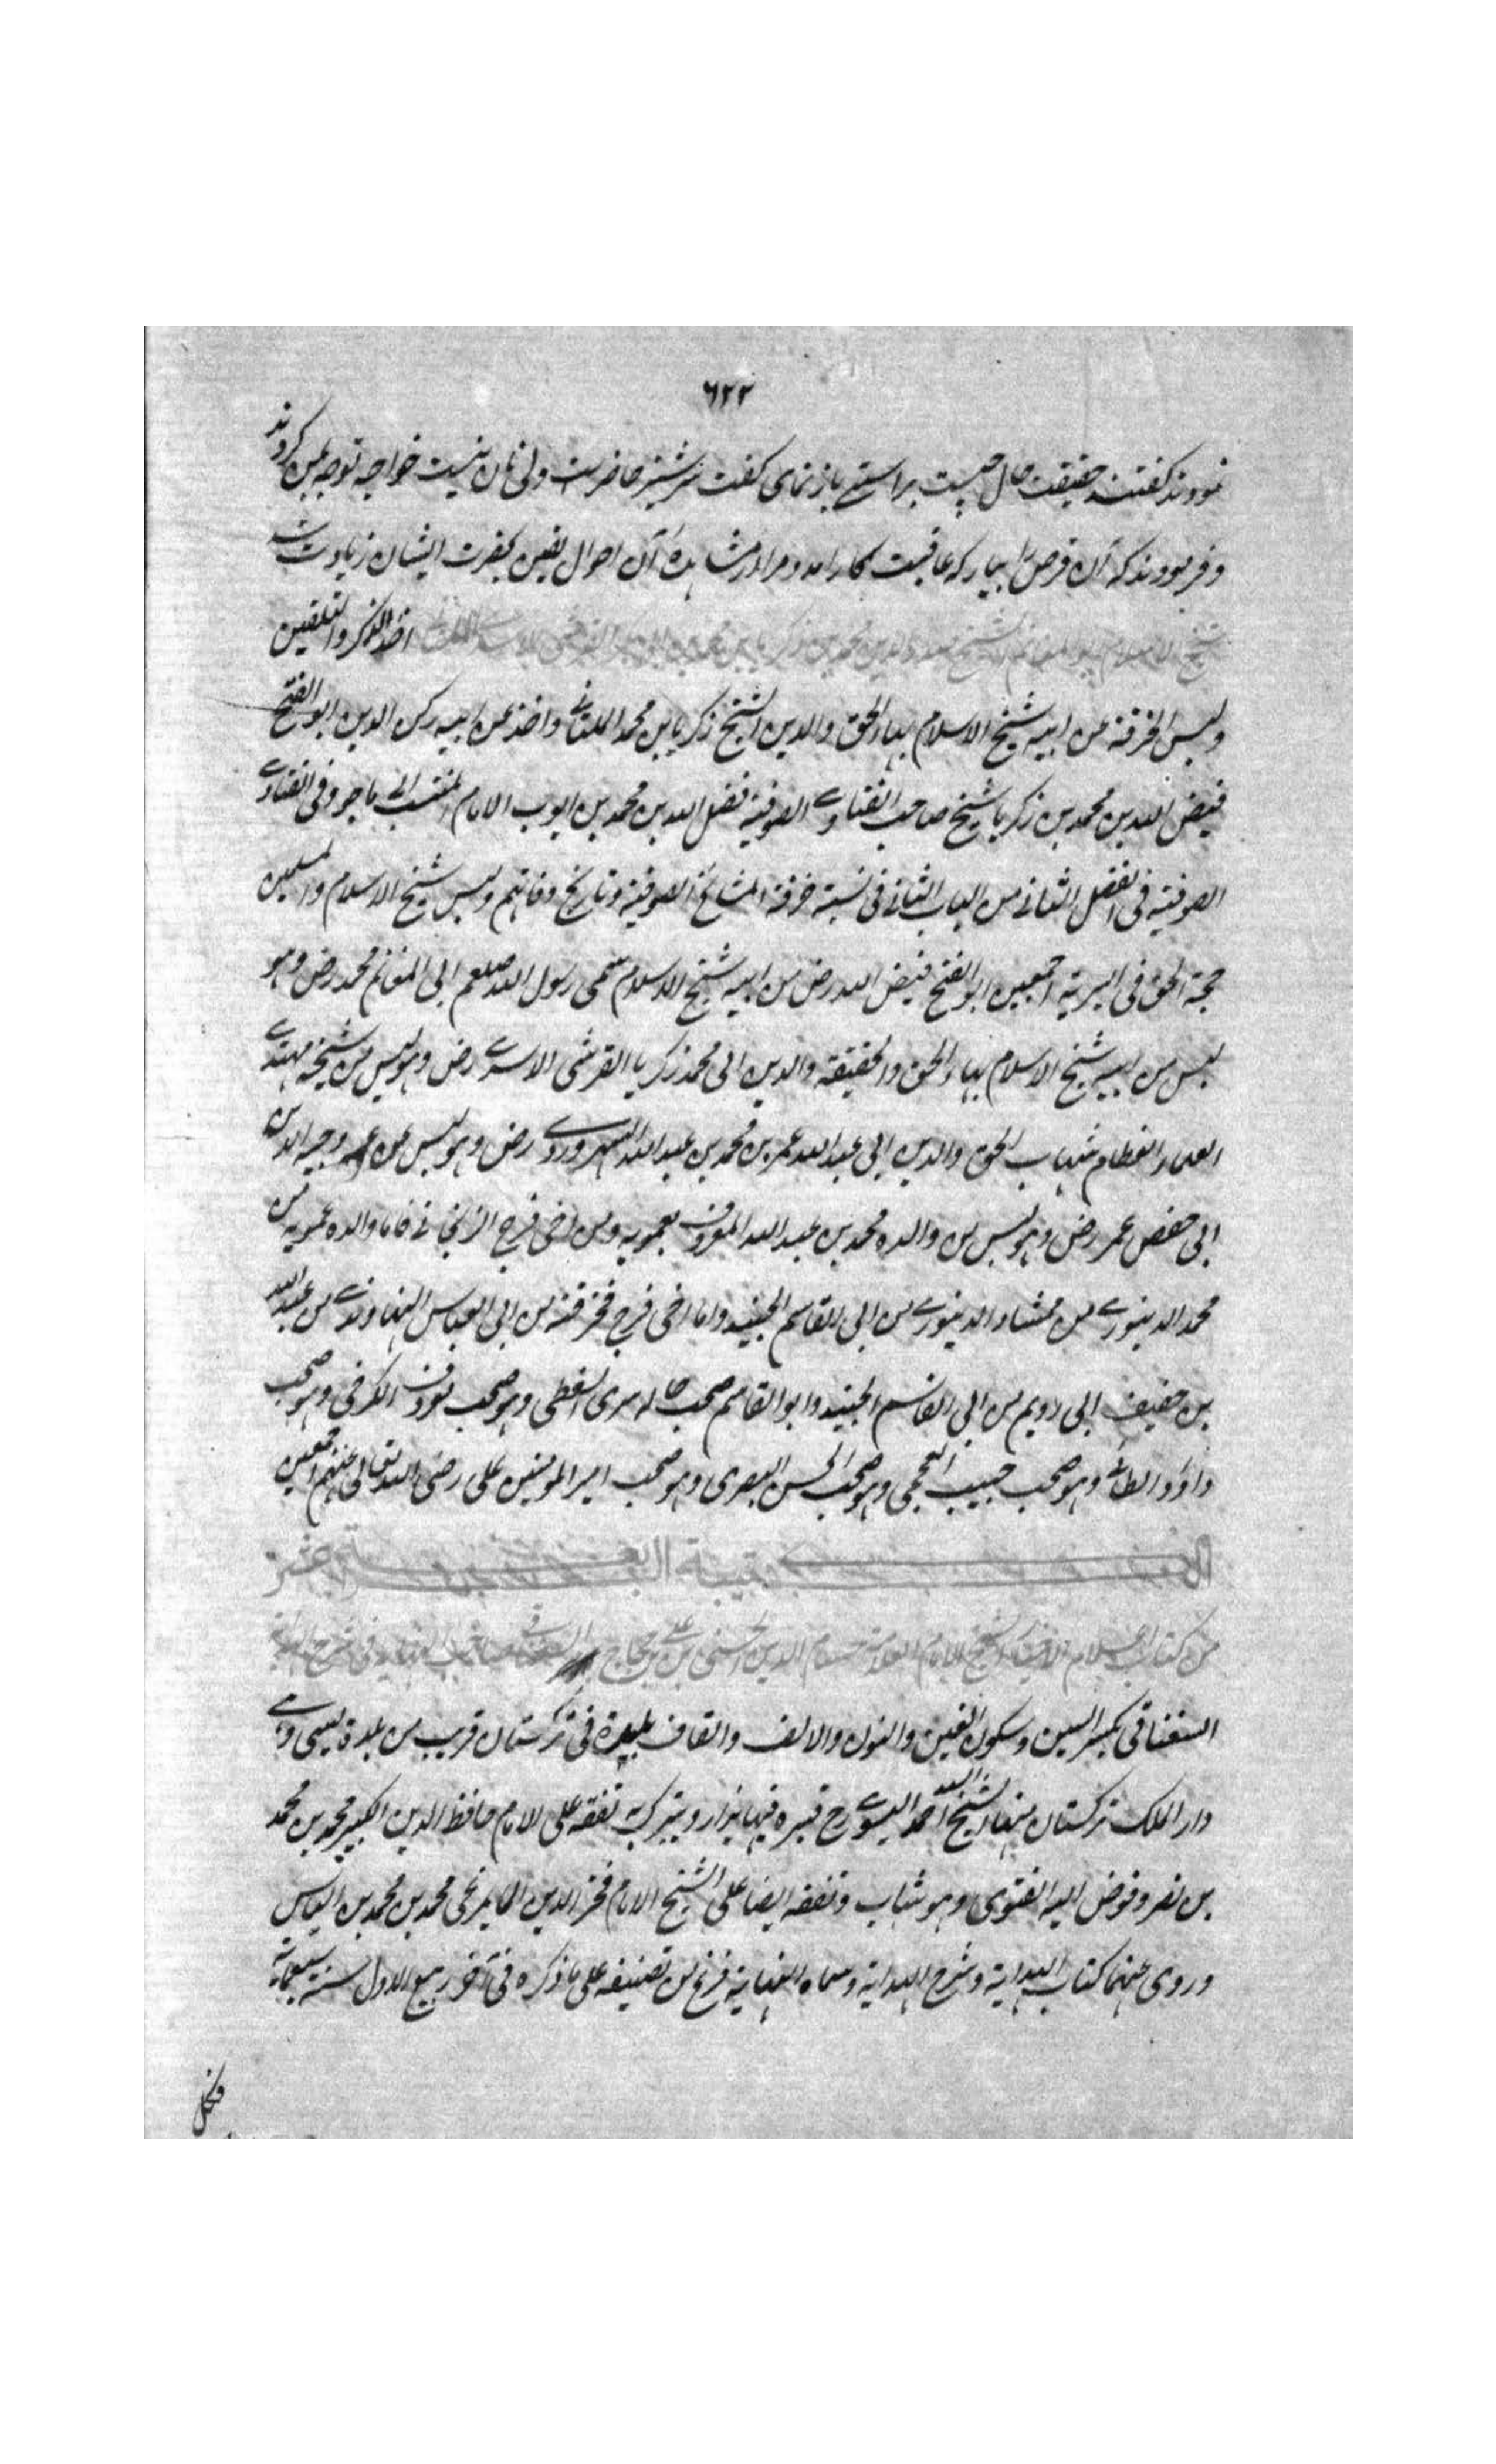 ٦٢٢
نمودند گفتند حقیقت حال چیست براستی بازنمای گفت سرشیر حاضرست ولی نان نیست خواجه توجه بمن کردند
و فرمودند که آن قرص را بیار که عاقبت بکار آمد و مرا از مشاهده آن احوال یقین بحضرت ایشان زیادت شد
شیخ الاسلام ابو المغانم الشیخ صدر الدین محمد بن زکریا بن محمد القرشی الاسدی اخذ الذکر والتلقین
ولبس الخرقة عن ابیه شیخ الاسلام بهاء الحق والدین الشیخ زکریا بن محمد الملتانی واخذ عن ابیه رکن الدین ابو الفتح
فیض الله بن محمد بن زکریا شیخ صاحب الفتاوی الصوفیة فضل الله بن محمد بن ایوب الامام المنتسب الی ماجو وفی الفتاوی
الصوفیة فی الفصل الثانی من الباب الثانی فی نسبة خرقة المشائخ الصوفیة وتاریخ وفاتهم ولبس شیخ الاسلام والمسلمین
حجة الحق فی البریة اجمعین ابو الفتح فیض الله رض من ابیه شیخ الاسلام سمی رسول الله صلعم ابی المغانم محمد رض وهو
لبس من ابیه شیخ الاسلام بهاء الحق والحقیقة والدین ابی محمد زکریا القرشی الاسدی رض وهو لبس من شیخه مهتدی
العلماء العظام شهاب الحق والدین ابی عبد الله عمر بن محمد بن عبد الله السهروردی رض وهو لبس من عمه وجیه الدین
ابی حفص عمر رض وهو لبس من والده محمد بن عبد الله المعروف بعمویه ومن اخی فرج الزنجانی فاما والده عمویه من
محمد الدینوری من ممشاد الدینوری من ابی القاسم الجنید واما اخی فرج فخرقته من ابی العباس النهاوندی من عبد الله
بن خفیف ابی رویم من ابی القاسم الجنید وابو القاسم صحب خاله سری السقطی وهو صحب معروف الکرخی وهو صحب
داؤد الطائی وهو صحب حبیب العجمی وهو صحب الحسن البصری وهو صحب امیر المومنین علی رضی الله تعالی عنهم اجمعین
من کتائب اعلام الاخیار الشیخ الامام العلامة حسام الدین الحسین بن علی بن حجاج السغناقی صاحب النهایة فی شرح الهدایة
السغناقی بکسر السین وسکون الغین والنون والالف والقاف بلیدة فی ترکستان قریب من بلدة یسی وهی
دار الملک ترکستان منها الشیخ احمد الیسوی رح قبره فیها یزار ویتبرک به تفقه علی الامام حافظ الدین الکبیر محمد بن محمد
بن نصر وفوض الیه الفتوی وهو شاب وتفقه ایضا علی الشیخ الامام فخر الدین المایمرغی محمد بن محمد بن الیاس
وروی عنهما کتاب الهدایة وشرح الهدایة وسماه النهایة فرغ من تصنیفه علی ما ذکره فی آخر ربیع الاول سنة سبعمایة